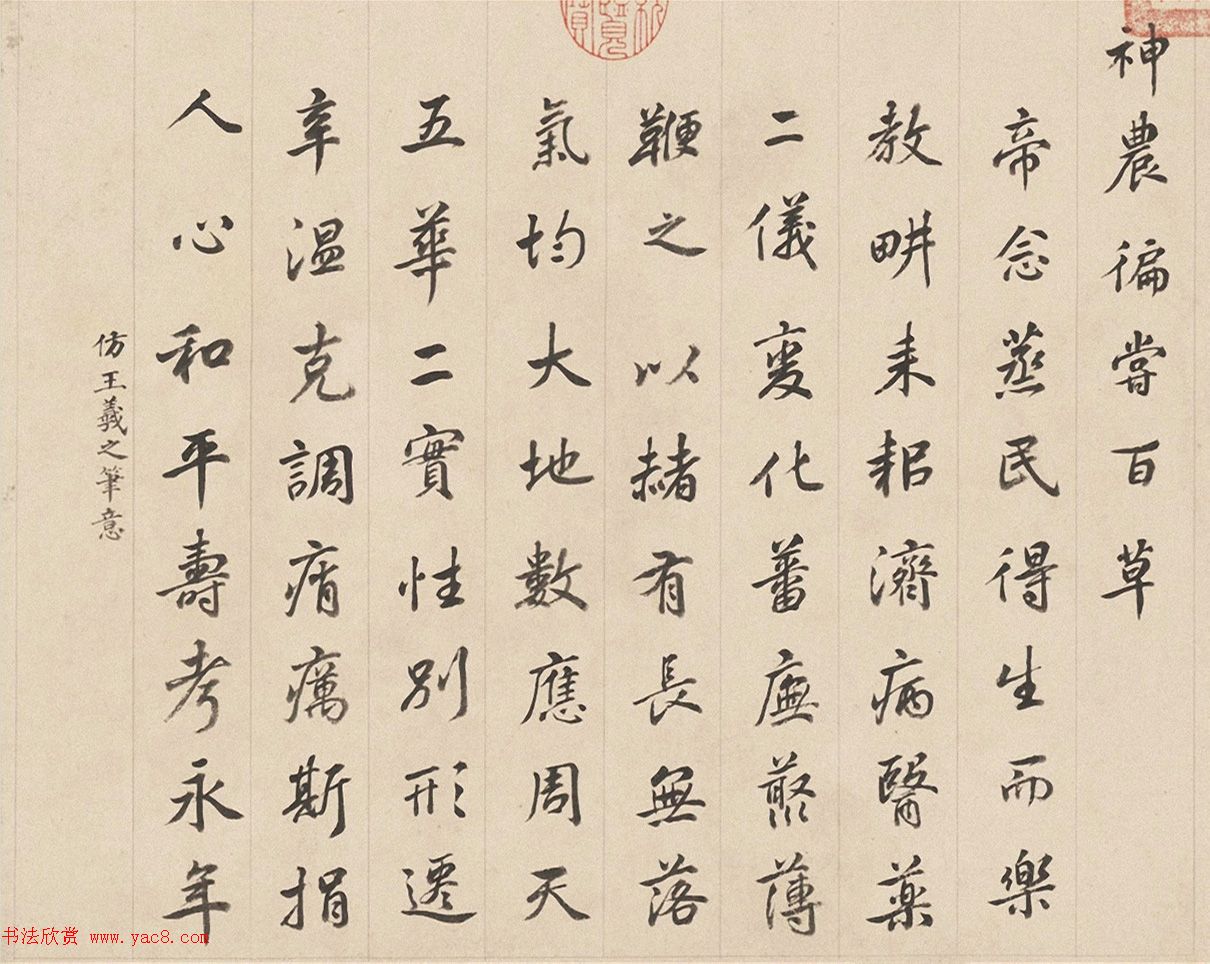 神農徧嘗百草
帝念蒸民得生而樂
教畊耒耜濟病醫藥
二儀變化蕃廡藂薄
鞭之以赭有長無落
氣均大地數應周天
五華二實性別形遷
辛温克調痟癘斯捐
人心和平壽考永年
仿王羲之筆意
书法欣赏 www.yac8.com